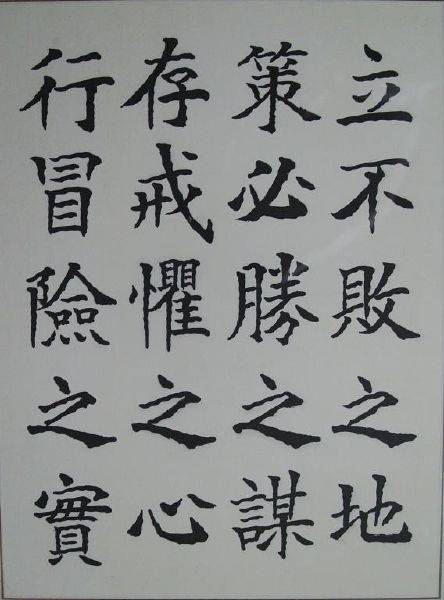 立不敗之地
策必勝之謀
存戒懼之心
行冒險之實